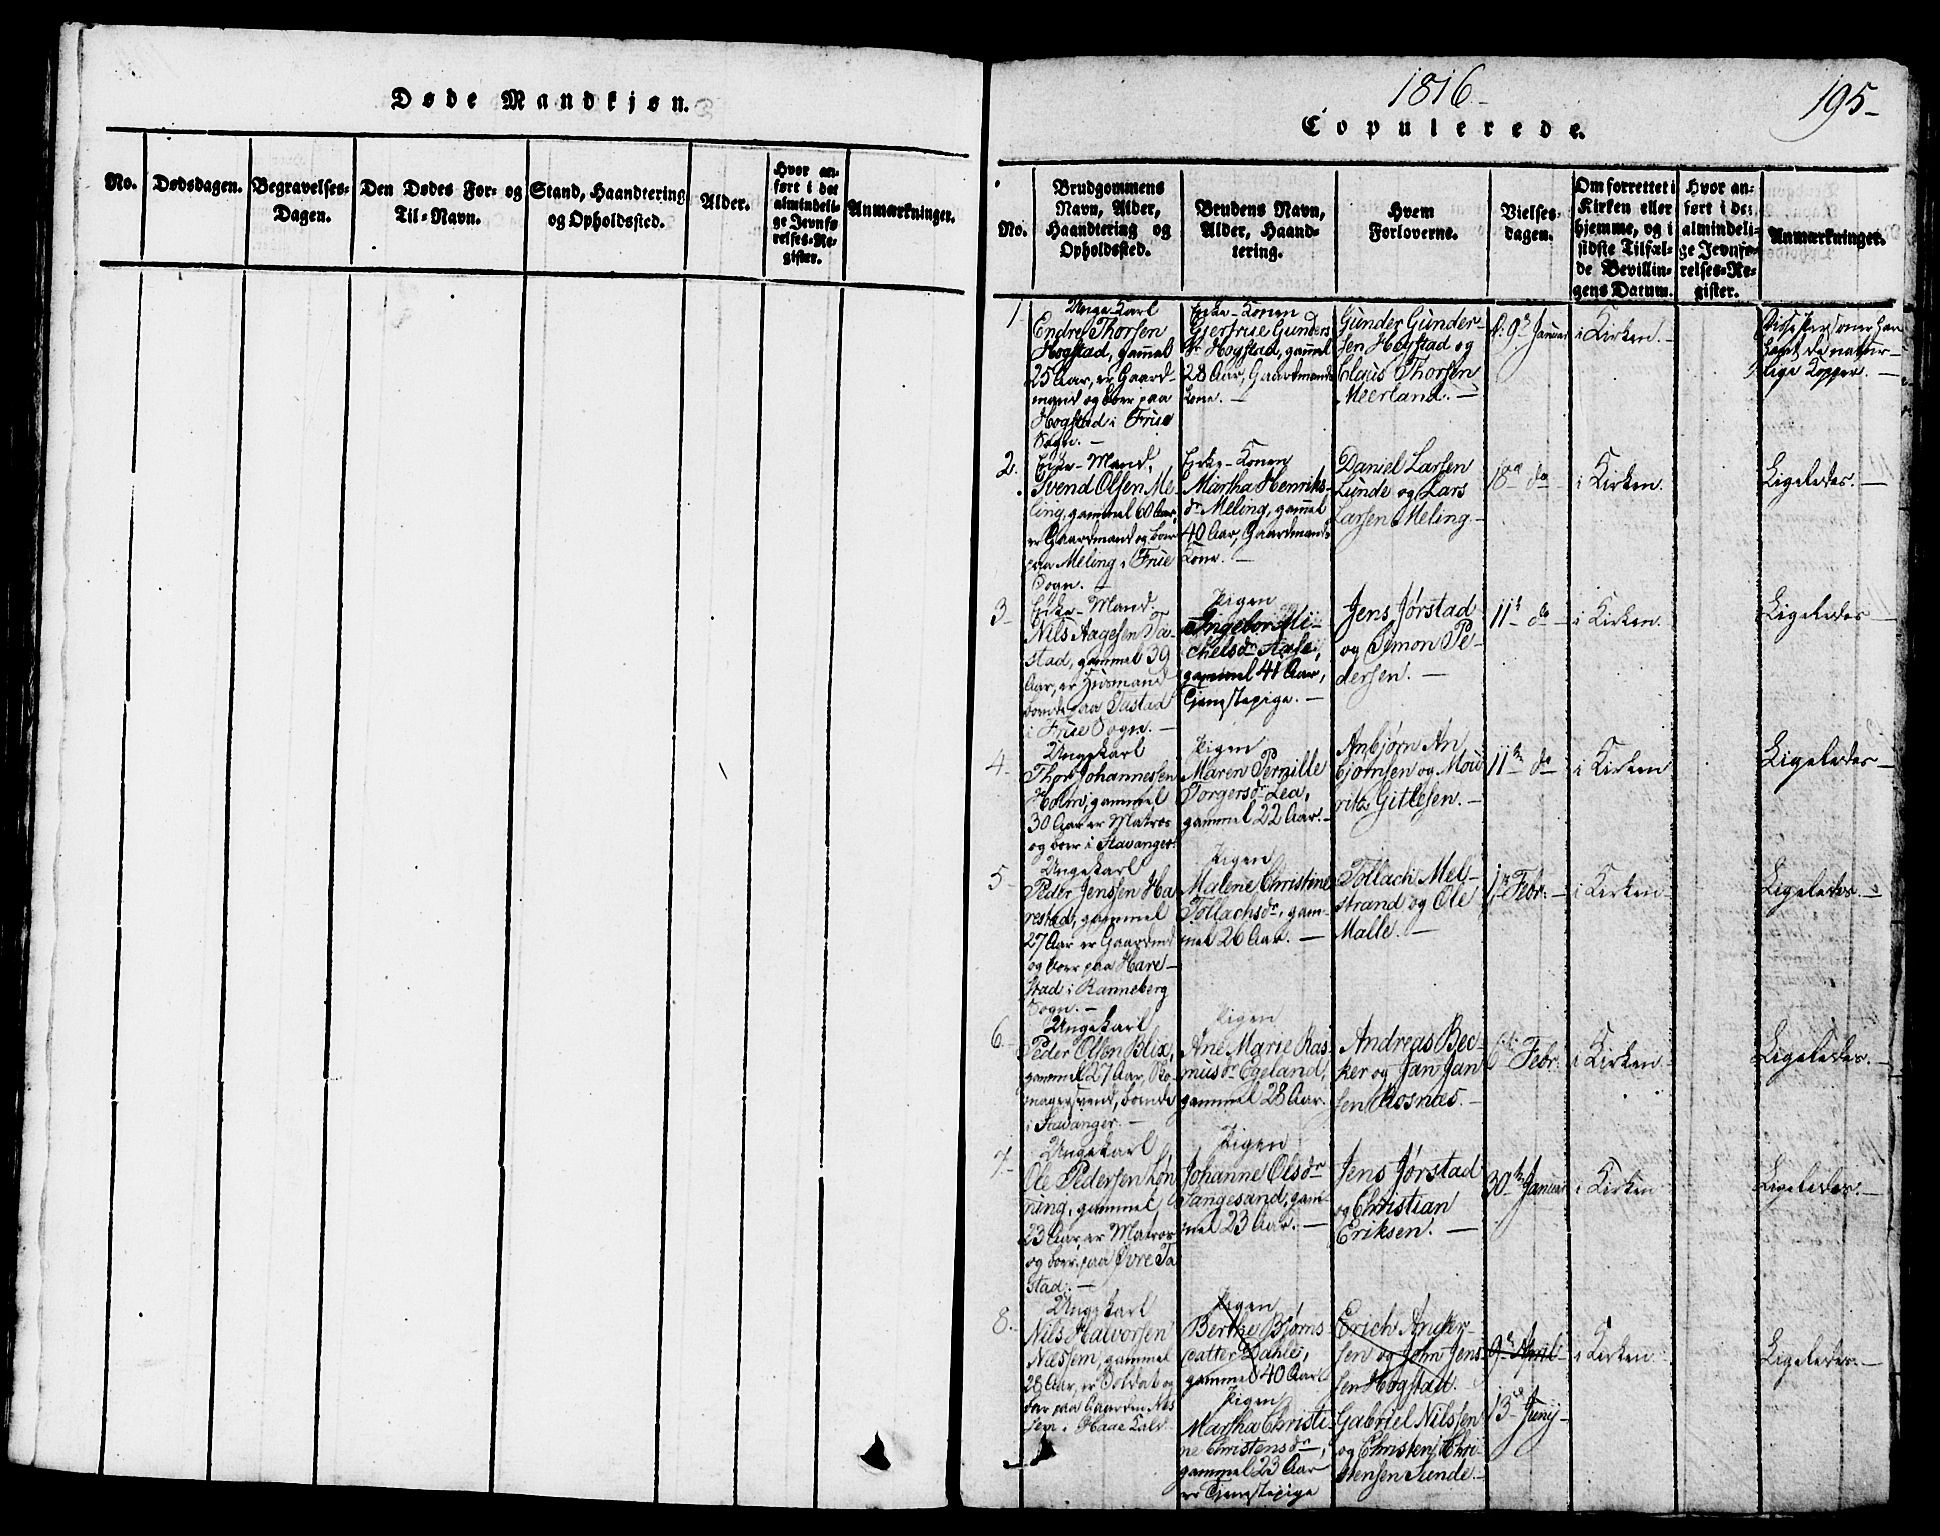 Døde Mandkjøn.
No.
Dødsdagen.
Begravelses-
Dagen.
Den Dødes For- og
Til-Navn.
Stand, Haandtering
og Opholdssted.
Alder.
Hvor an-
ført i det
almindeli-
ge Jevnfø-
relses-Re-
gister.
Anmærkninger.
1816-
195-
Copulerede.
No.
Brudgommens
Navn, Alder,
Haandtering og
Opholdssted.
Brudens Navn,
Alder, Haand-
tering.
Hvem
Forloverne.
Vielses-
dagen.
Om forrettet i
Kirken eller
hjemme, og i
sidste Tilfæl-
de Bevillin-
gens Datum.
Hvor an-
ført i det
almindeli-
ge Jevnfø-
relses-Re-
gister.
Anmærkninger.
1
Unge Karl
Endre Thorsen
Hogstad, gammel
25 Aar, er Gaard-
mand og boer paa
Hogstad i Frue
Sogn. -
Enke-Konen
Gjertrue Gunders
dr Hogstad, gammel
28 Aar, Gaardmands
Kone. -
Gunder Gunder-
sen Hogstad og
Claus Thorsen
Meerland. -
d. 9de Januar
i Kirken. -
Disse Personer har
havt de natur-
lige Kopper. -
2.
Enke-Mand,
Svend Olsen Me-
ling, gammel 60 Aar,
er Gaardmand og boer
paa Meling i Frue
Sogn. -
Enke-Konen
Martha Henriks-
dr Meling, gammel
40 Aar, Gaardmands
Kone. -
Daniel Larsen
Lunde og Lars
Larsen Meling -
10de do
i Kirken.
Ligeledes. -
3-
Enke-Mand -
Nils Aagesen Ta-
stad, gammel 39
Aar, er Huusmand
boende paa Tastad
i Frue Sogn. -
Pigen
Ingebor Mi-
chelsdr
gammel 41 Aar,
Tjenstepige. -
Jens Jørstad
og Simon Pe-
dersen. -
11te do -
i Kirken
Ligeledes -
4-
Ungekarl
Thor Johannessen
Holm, gammel
30 Aar er Matros
og boer i Stavanger.
Pigen
Maren Pernille
Torgersdr Lea,
gammel 22 Aar. -
Anbjørn An
bjørnsen og Mou
ritz Gitlesen. -
11te do
i Kirken
Ligeledes -
5-
Ungekarl
Peder Jenssen Ha
restad, gammel
27 Aar er Gaardmd
og boer paa Hare-
stad i Ranneberg
Sogn. -
Pigen
Malene Christine
Tollachsdr, gam-
mel 26 Aar. -
Tollach Mel-
strand og Ole
Malle. -
1te Febr. -
i Kirken -
Ligeledes. -
6-
Ungekarl
Peder Olsen Blix,
gammel 27 Aar,
boende
i Stavanger. -
Pigen
Ane Marie Ras-
musdr Egeland,
gammel 28 Aar.
Andreas Bec-
ker og Jan Jan
sen Aosnæs. -
6te Febr.
i Kirken
Ligeledes. -
7-
Ungekarl
Ole Pedersen Løn
ning, gammel
23 Aar, er Matros
og boer paa Øvre Ta
stad. -
Pigen
Johanne Olsdr
Tangesand, gam-
mel 23 Aar. -
Jens Jørstad
og Christian
Eriksen. -
30te Januar
i Kirken
Ligeledes. -
8. -
Ungekarl
Nils Halvorsen
Næssem, gammel
28 Aar, er Soldat og
boer paa Gaarden Næs
sem i Haae Kald
Pigen
Berthe Bjørns
datter Dahle,
gammel 40 Aar
Pigen
Martha Christi
ne Christensdr,
gammel 23 Aar
er Tjenstepige
Erich Ander-
sen og John Jens
sen Hogstad.
Gabriel Nilssen
og Christen Chri-
stensen Sunde. -
9de April
13de Junij -
i Kirken -
Ligeledes. -